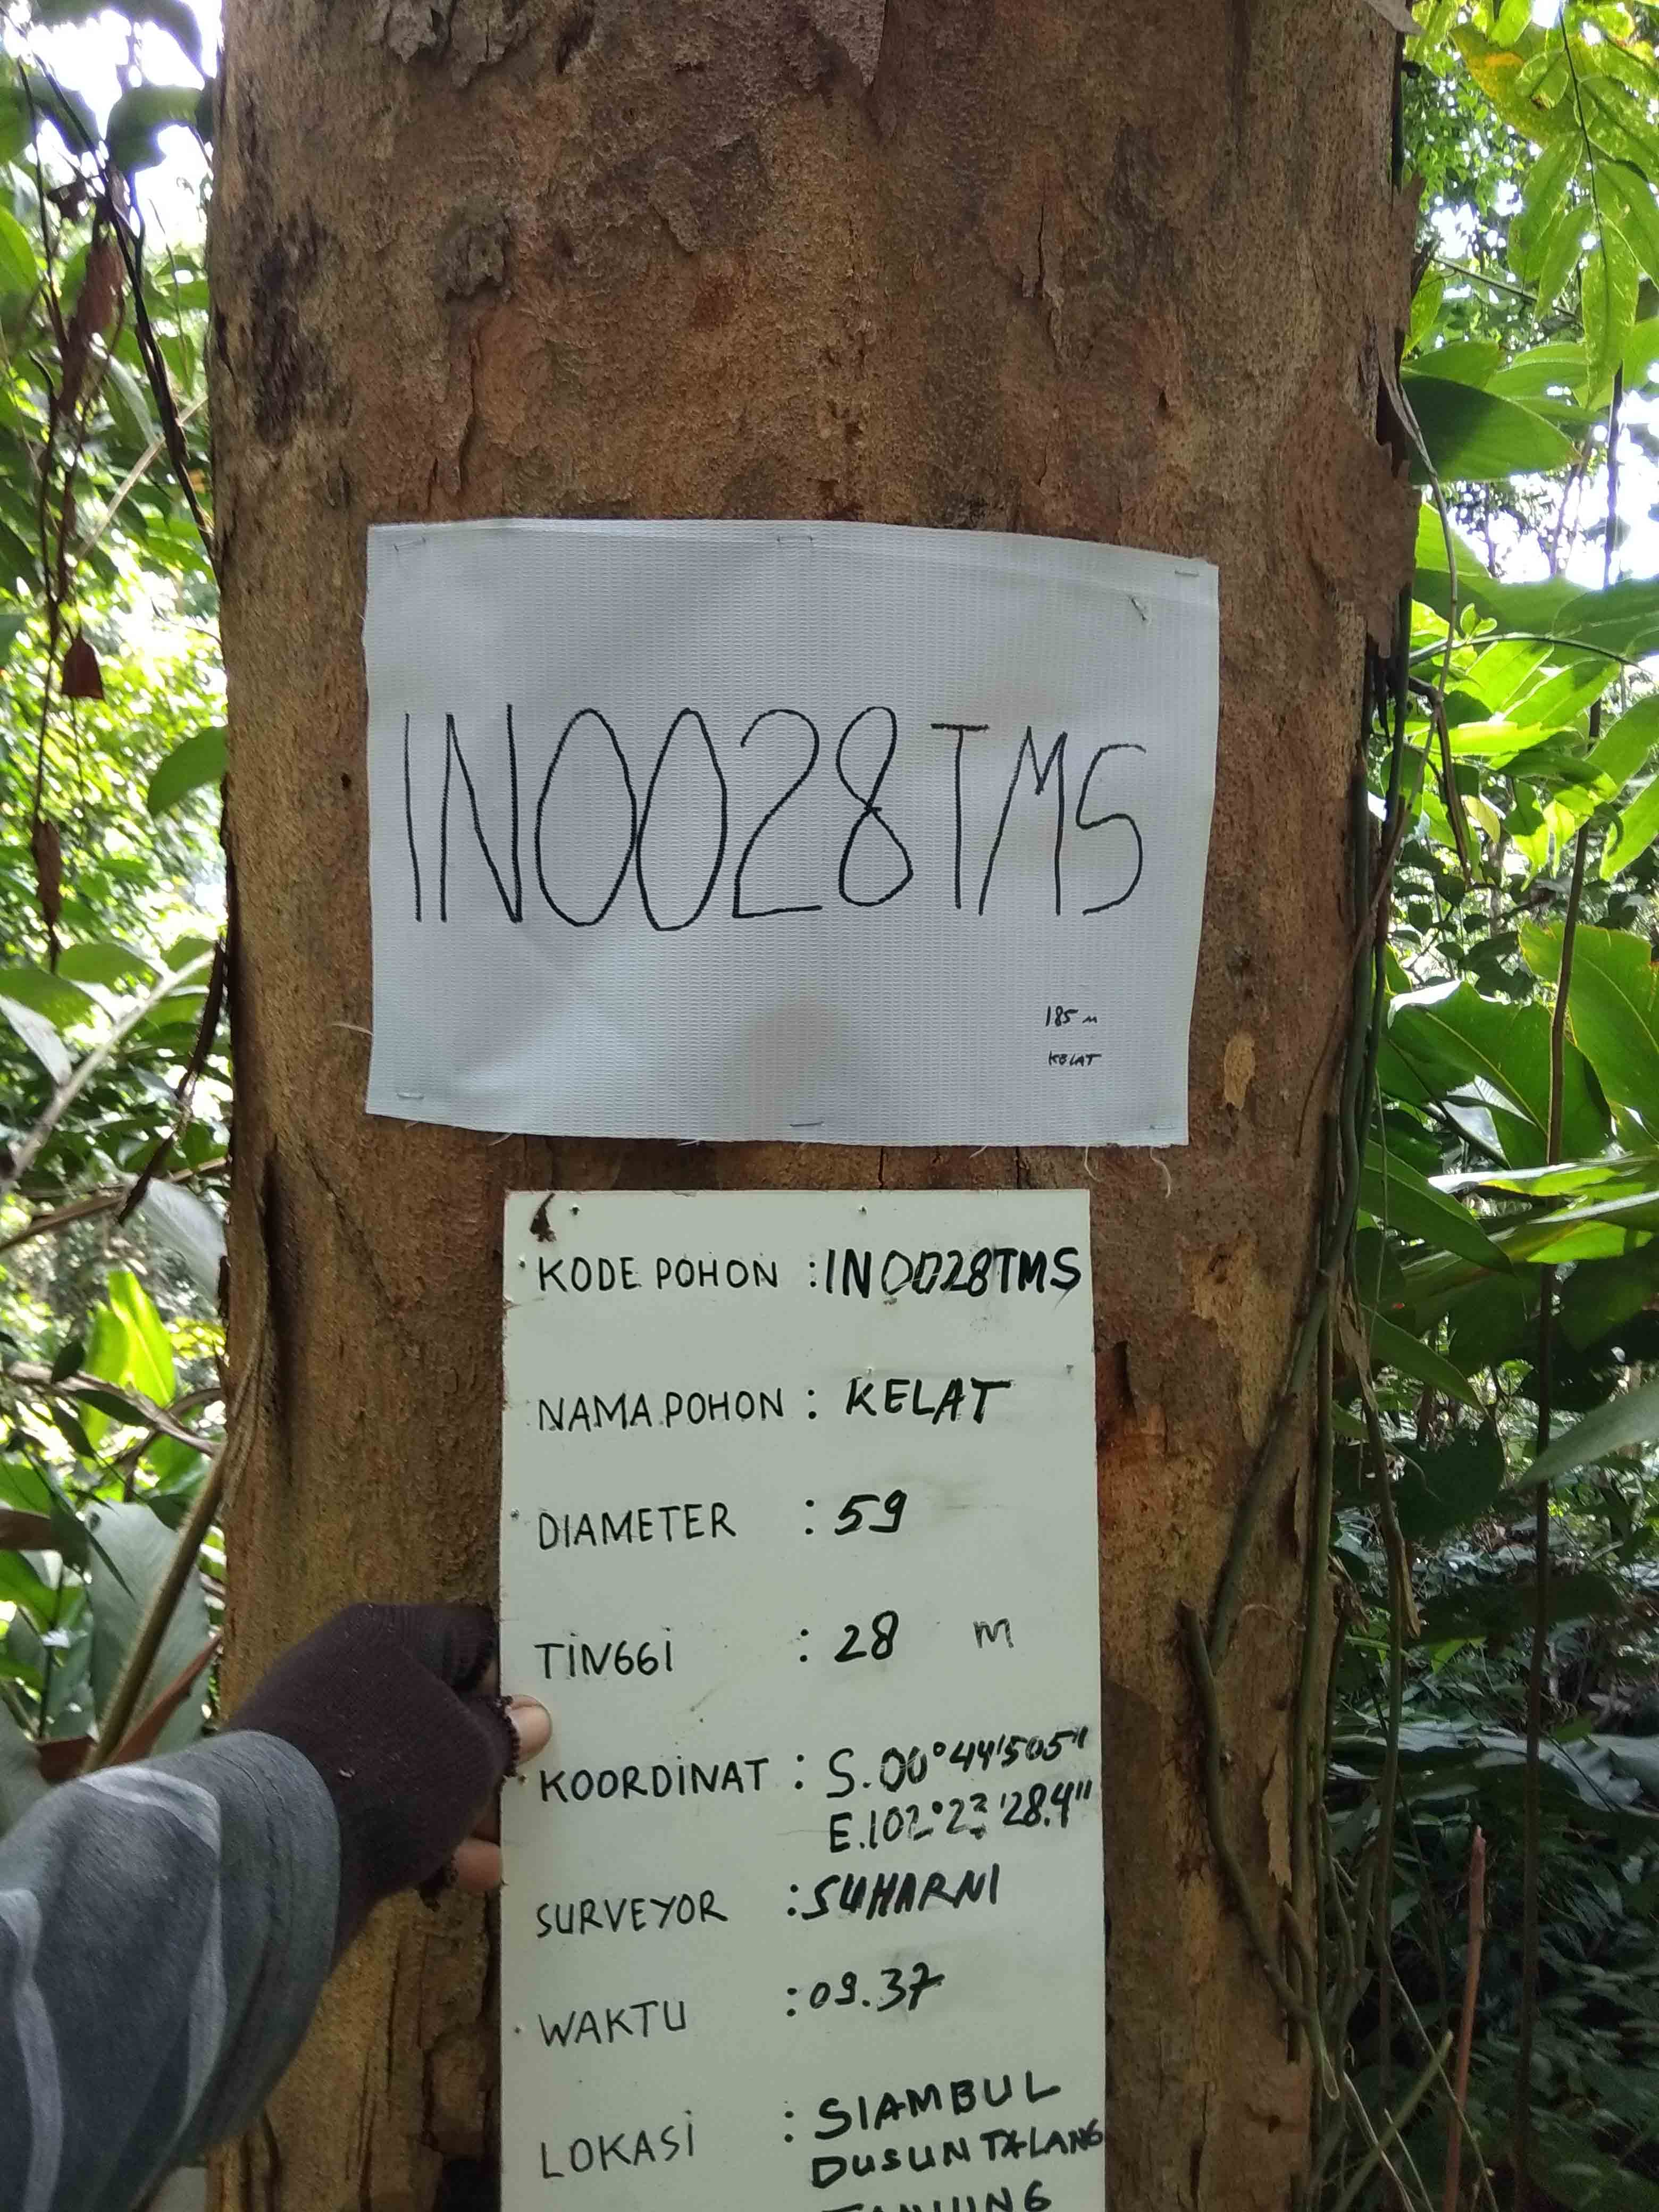 IN0028TMS
185 M
KELAT
KODE POHON : IN0028TMS
NAMA POHON : KELAT
DIAMETER : 59
TINGGI : 28 m
KOORDINAT : S.00°44'505"
E.102°23'28.4"
SURVEYOR : SUHARNI
WAKTU : 09.37
LOKASI : SIAMBUL
DUSUN TALANG
TANJUNG